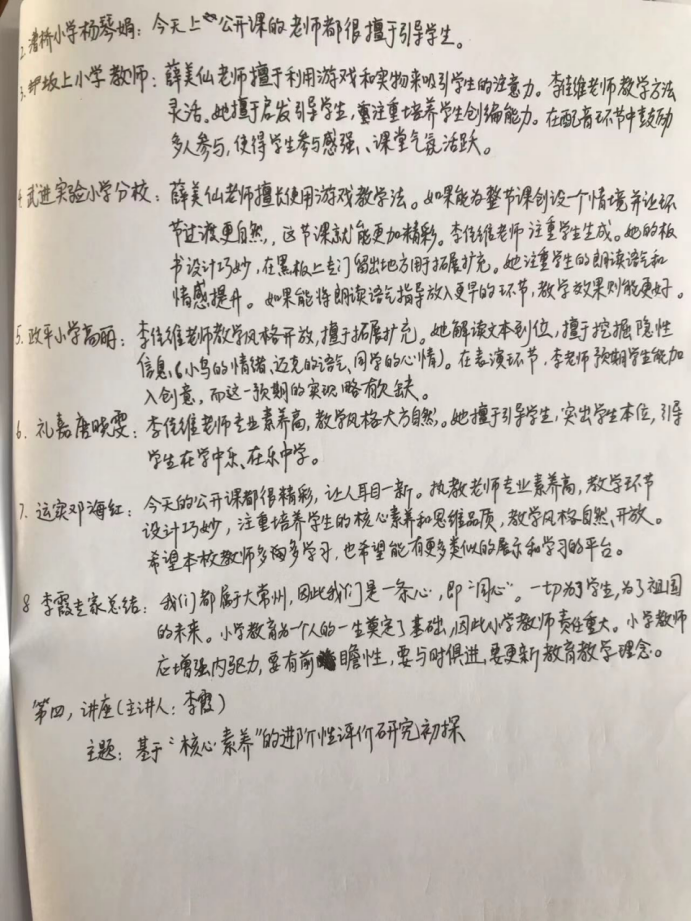 2. 漕桥小学杨琴娟：今天上公开课的老师都很擅于引导学生。
3. 坂上小学教师：薛美仙老师擅于利用游戏和实物来吸引学生的注意力。李佳维老师教学方法
灵活。她擅于启发引导学生，注重培养学生创编能力。在配音环节中鼓励
多人参与，使得学生参与感强、课堂气氛活跃。
4. 武进实验小学分校：薛美仙老师擅长使用游戏教学法。如果能为整节课创设一个情境并让环
节过渡更自然，这节课就能更加精彩。李佳维老师注重学生生成。她的板
书设计巧妙，在黑板上专门留出地方用于拓展扩充。她注重学生的朗读语气和
情感提升。如果能将朗读语气指导放入更早的环节，教学效果则能更好。
5. 政平小学高丽：李佳维老师教学风格开放，擅于拓展扩充。她解读文本到位，擅于挖掘隐性
信息（小鸟的情绪、迈克的语气、同学的心情）。在表演环节，李老师预期学生能加
入创意，而这一预期的实现略有欠缺。
6. 礼嘉唐晓雯：李佳维老师专业素养高，教学风格大方自然。她擅于引导学生，突出学生本位，引导
学生在学中乐、在乐中学。
7. 运实邓海红：今天的公开课都很精彩，让人耳目一新。执教老师专业素养高，教学环节
设计巧妙，注重培养学生的核心素养和思维品质，教学风格自然、开放。
希望本校教师多多学习，也希望能有更多类似的展示和学习的平台。
8 李霞专家总结：我们都属于大常州，因此我们是一条心，即“同心”。一切为了学生，为了祖国
的未来。小学教育为一个人的一生奠定了基础，因此小学教师责任重大。小学教师
应增强内驱力，要有前瞻性，要与时俱进，要更新教育教学理念。
第四，讲座（主讲人：李霞）
主题：基于“核心素养”的进阶性评价研究初探